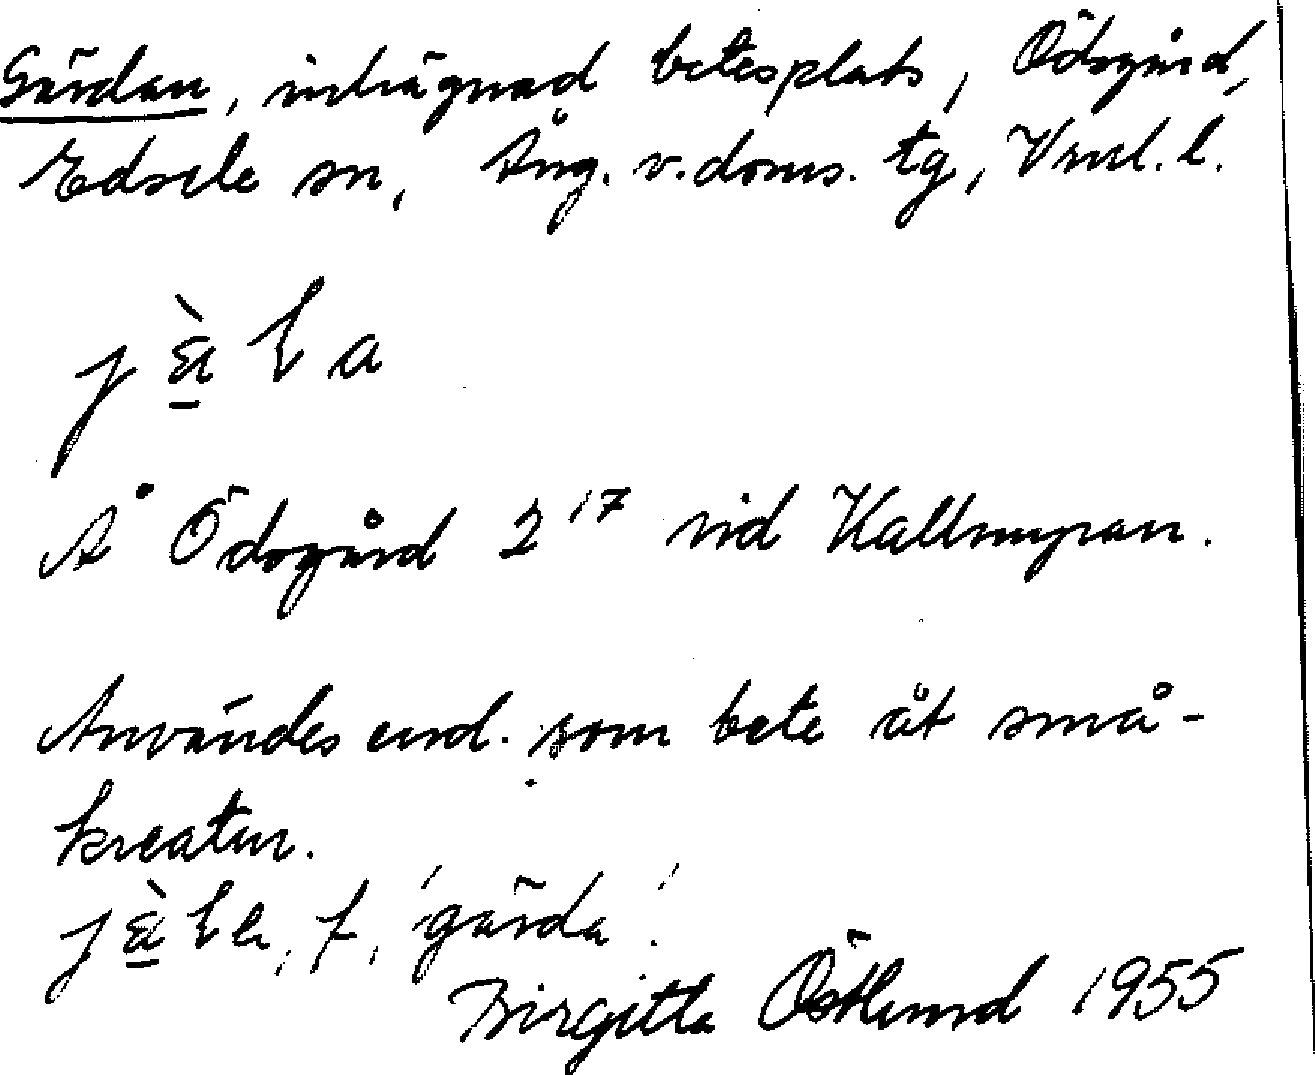 Gärdan, inhägnad betesplats, Ödsgård,
Edsele sn, Ång. v. doms. tg, Vnrl. l.
Å Ödsgård 2¹⁷ vid Kallmyran.
Användes end. som bete åt små-
kreatur.
f, 'gärda'.
Birgitta Östlund 1955